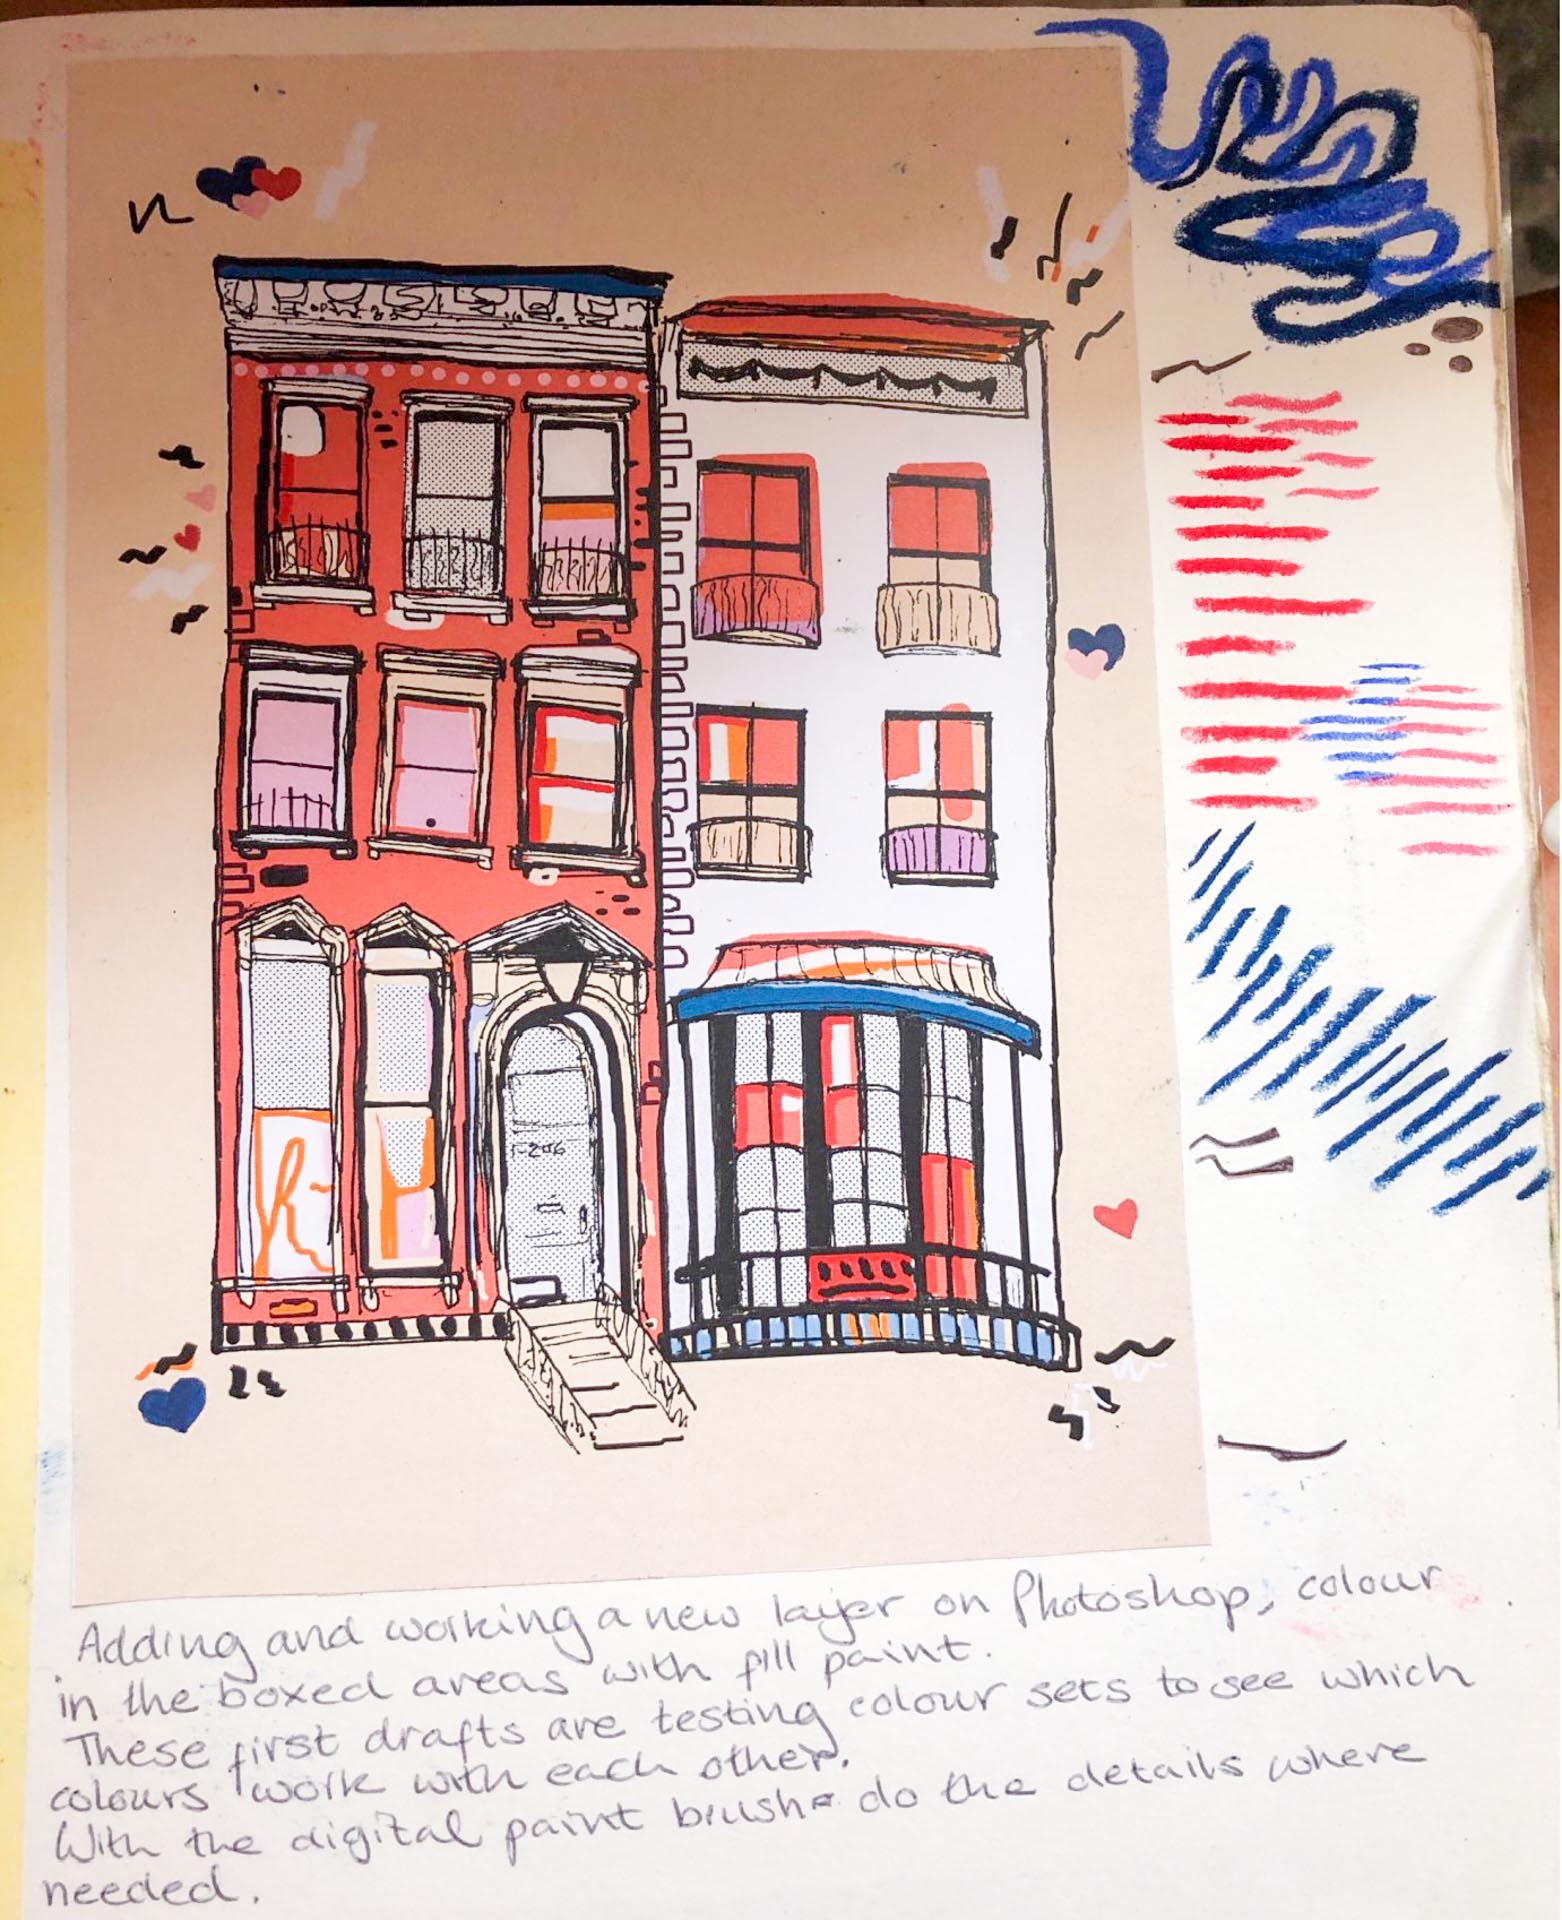 Adding and working a new layer on Photoshop, colour
in the boxed areas with fill paint.
These first drafts are testing colour sets to see which
colours work with each other.
With the digital paint brush do the details where
needed.